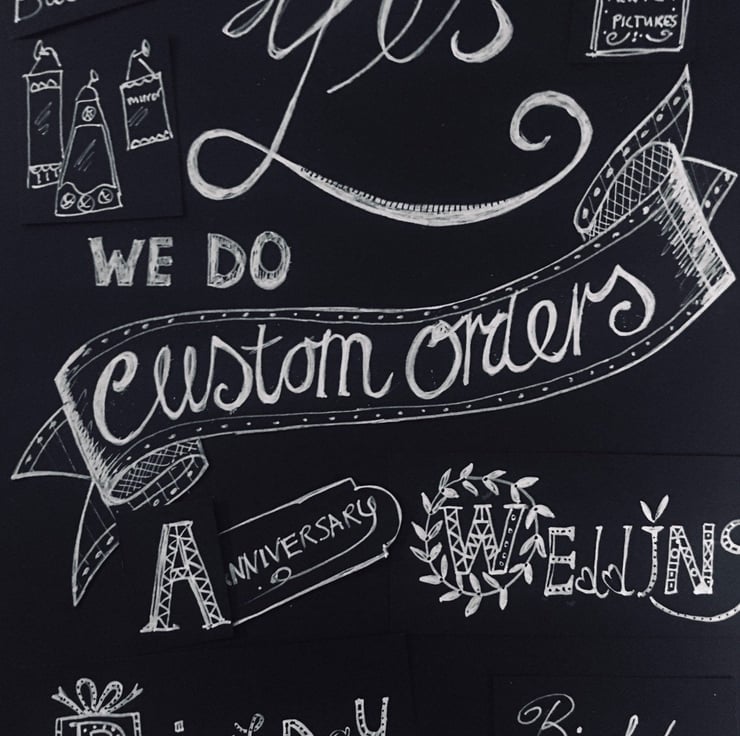 PICTURES
Yes
WE DO
custom orders
ANNIVERSARY
WEddJNg